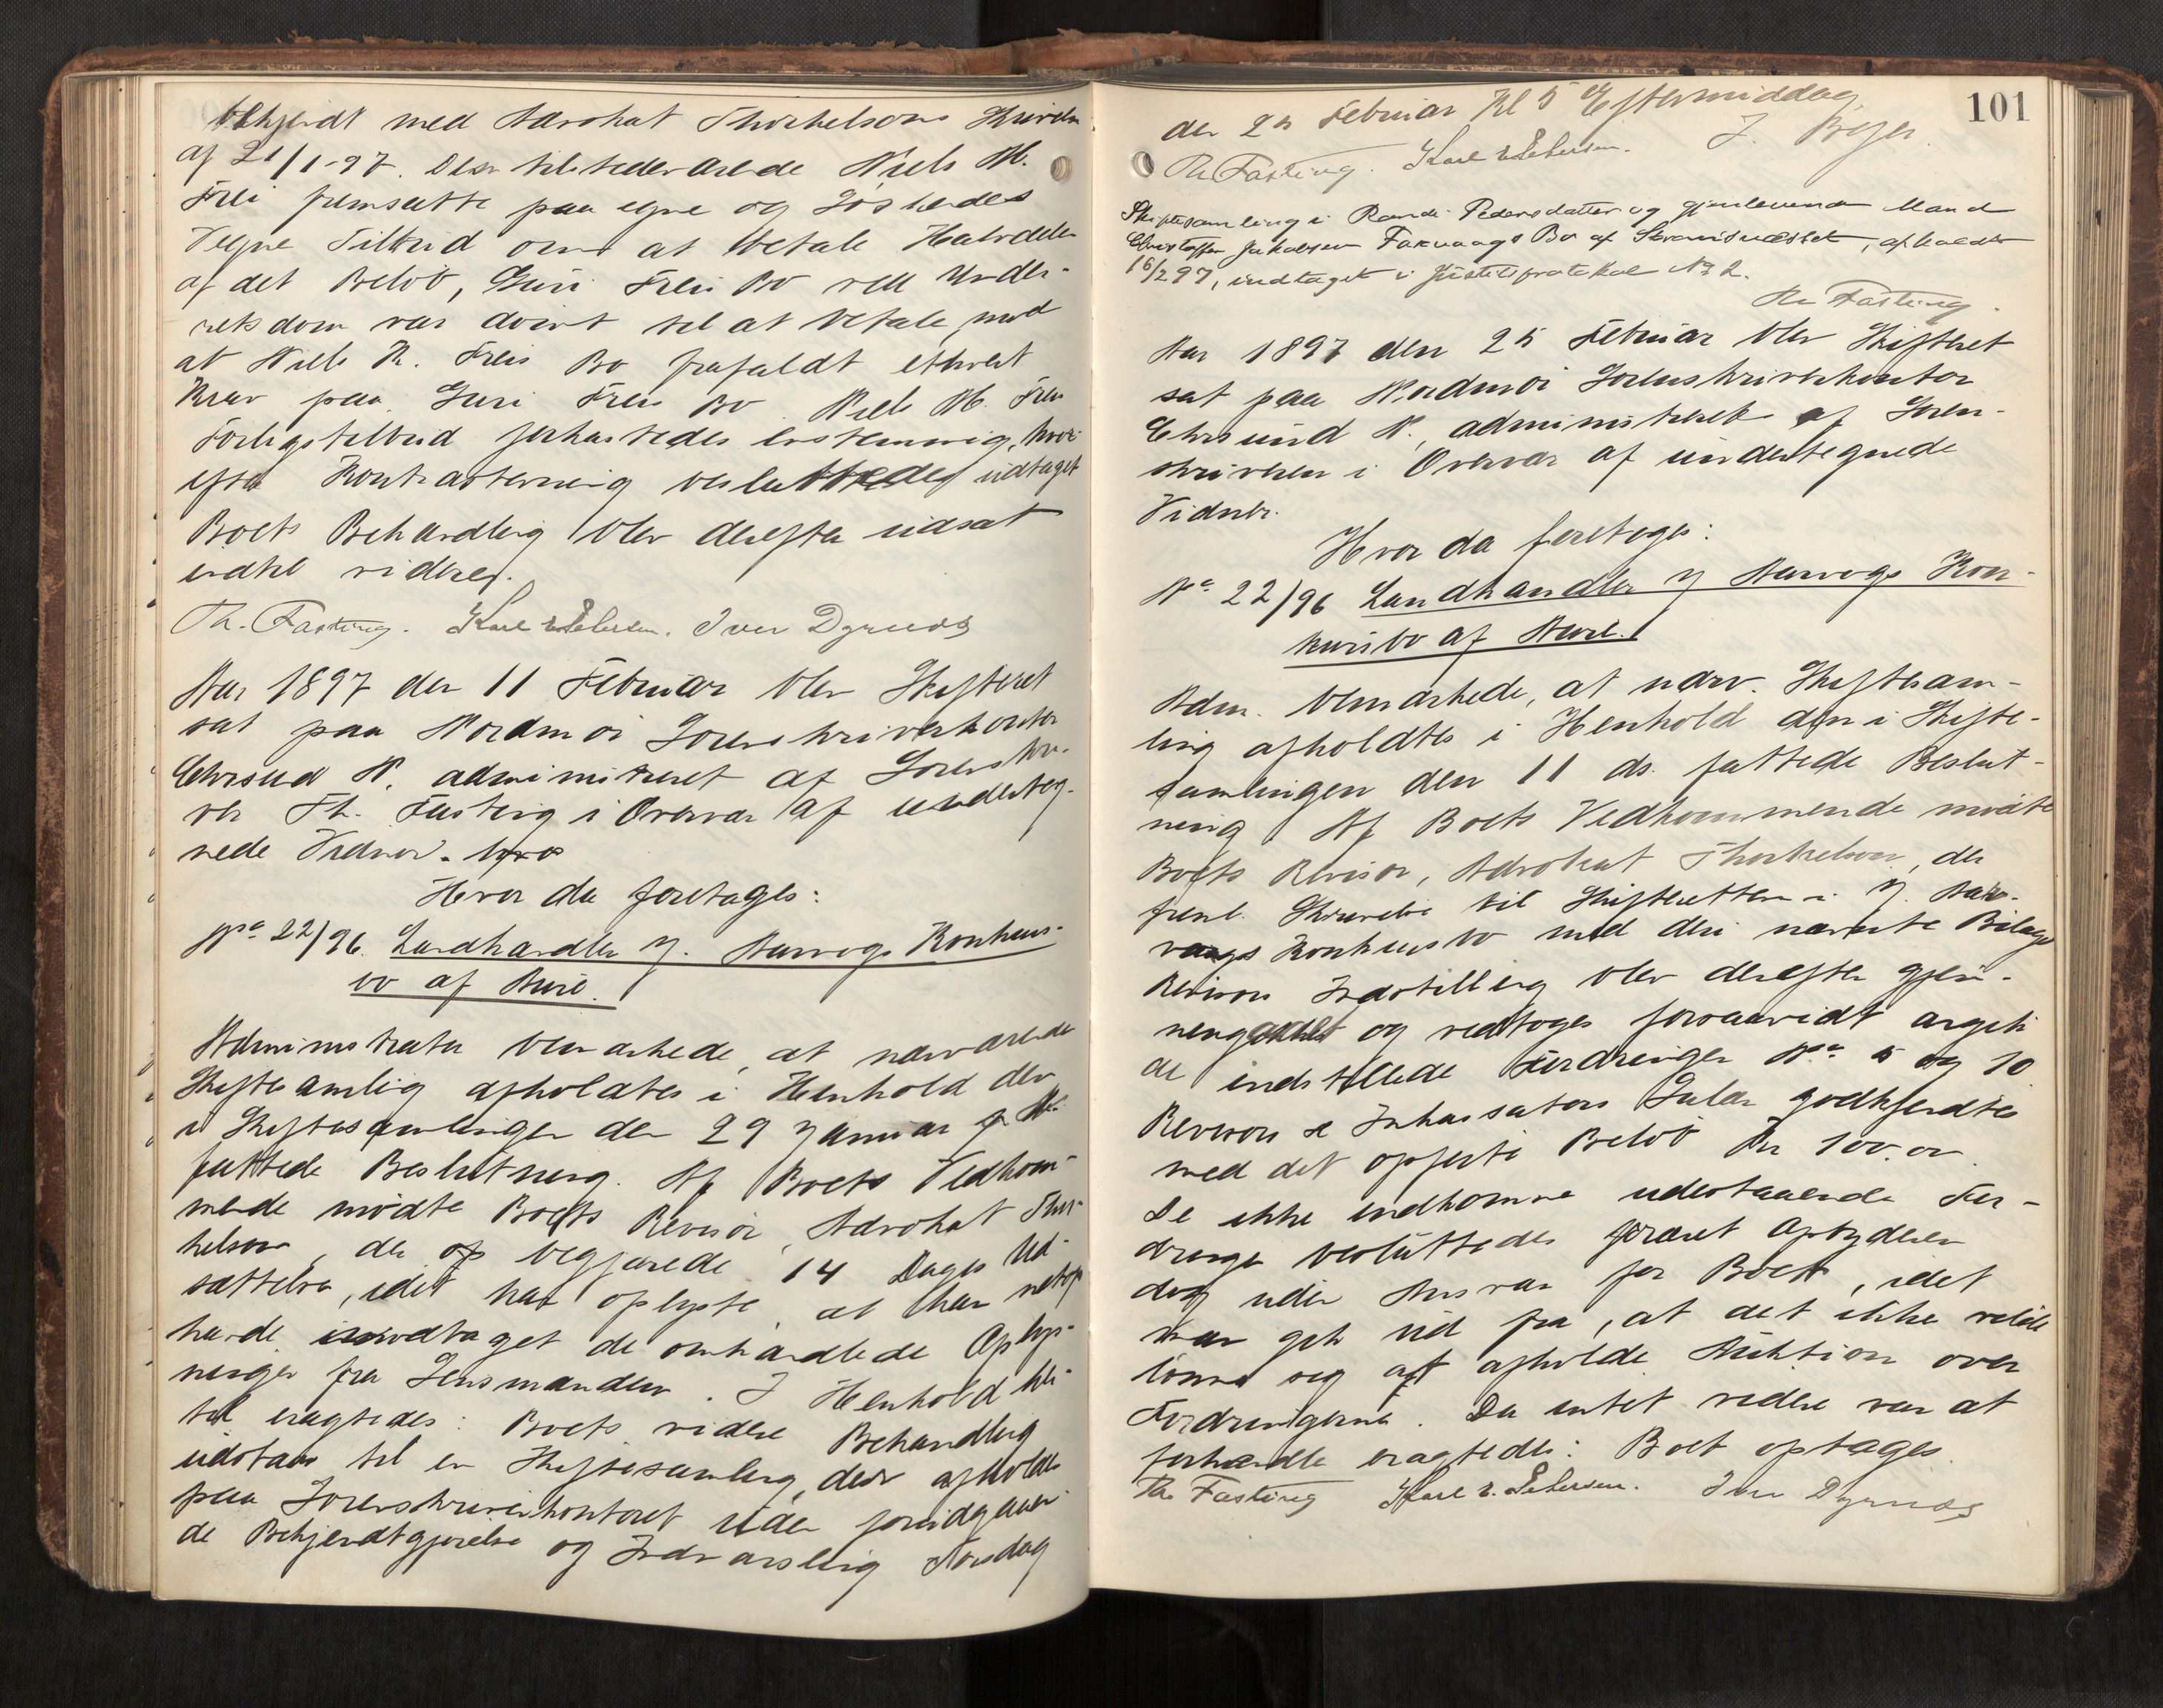 bekjendt med Advokat Thorkelsons Skrivelse
af 21/1-97. Den tilstedeværende Niels M.
Frei fremsatte paa egne og Søskendes
Vegne Tilbud om at betale Halvdelen
af det Beløb, Guri Freis Bo ved Under-
retsdom var dømt til at betale mod
at Niels N. Freis Bo frafaldt ethvert
Krav paa Guri Freis Bo. Niels M. Freis
Forligstilbud forkastedes enstemmig, hvor
efter Kontrastevning besluttedes udtaget
Boets Behandling blev derefter udsat
indtil videre.
Th. Fasting. Karl E. Petersen. Iver Dyrnes
Aar 1897 den 11 Februar blev Skifteret
sat paa Nordmøi Sorenskriverkontor
Chrsund N. administreret af Sorenskri-
ver Th. Fasting i Overvær af underteg-
nede Vidner.
Hvor da foretages:
No 22/96 Landhandler J. Aarvogs Konkurs-
bo af Aure.
Administrator bemærkede, at nærværende
Skiftesamling afholdtes i Henhold den
i Skiftesamlingen den 29 Januar
fattede Beslutning. Af Boets Vedkom-
mende mødte Boets Revisor, Advokat Thor-
kelson, der begjærede 14 Dages Ud-
sættelse, idet han oplyste, at han netop
havde modtaget de omhandlede Oplys-
ninger fra Lensmanden. I Henhold her-
til eragtedes: Boets videre Behandling
udstaar til en Skiftesamling, der afholdes
paa Sorenskriverkontoret uden foreidgaaen-
de Bekjendtgjørelse og Indvarsling Torsdag
101
den 25 Februar Kl 5 Eftermiddag
Th Fasting. Karl E Petersen. J. Bejer
Skiftesamling i Randi Pedersdatter og gjenlevende Mand
Christoffer Jakobsen Fakvaags Bo af Stromsnæsset, afholdes
16/2 97, indtaget i Justitsprotokol No 2.
Th Fasting
Aar 1897 den 25 Februar blev Skifteret
sat paa Nordmøi Sorenskriverkontor
Chrsund N., administreret af Soren-
skriveren i Overvær af undertegnede
Vidner.
Hvor da foretoges:
No 22/96 Landhandler J Aarvogs Kon-
kursbo af Aure.
Adm. bemærkede, at nærv. Skiftesam-
ling afholdtes i Henhold den i Skifte-
samlingen den 11 ds. fattede Beslut-
ning. Af Boets Vedkommende mødte
Boets Revisor, Advokat Thorkelson, der
freml. Skrivelse til Skifteretten i J. Aar-
vaags Konkursbo med deri nævnte Bilage
Revisors Indstilling blev derefter gjen-
nemgaaet og vedtoges forsaavidt angik
de indstillede Fordringer No 5 og 10
Revisors & Inkassators Salær godkjendtes
med det opførte Beløb Kr 100.00.
De ikke indkomne udestaaende For-
dringer besluttedes foræret Opbyderen
dog uden Ansvar for Boet, idet
man gik ud fra, at det ikke vilde
lønne sig at afholde Auktion over
Fordringerne. Da intet videre var at
forhandle eragtedes: Boet optages.
Th. Fasting Karl E. Petersen. Iver Dyrnes